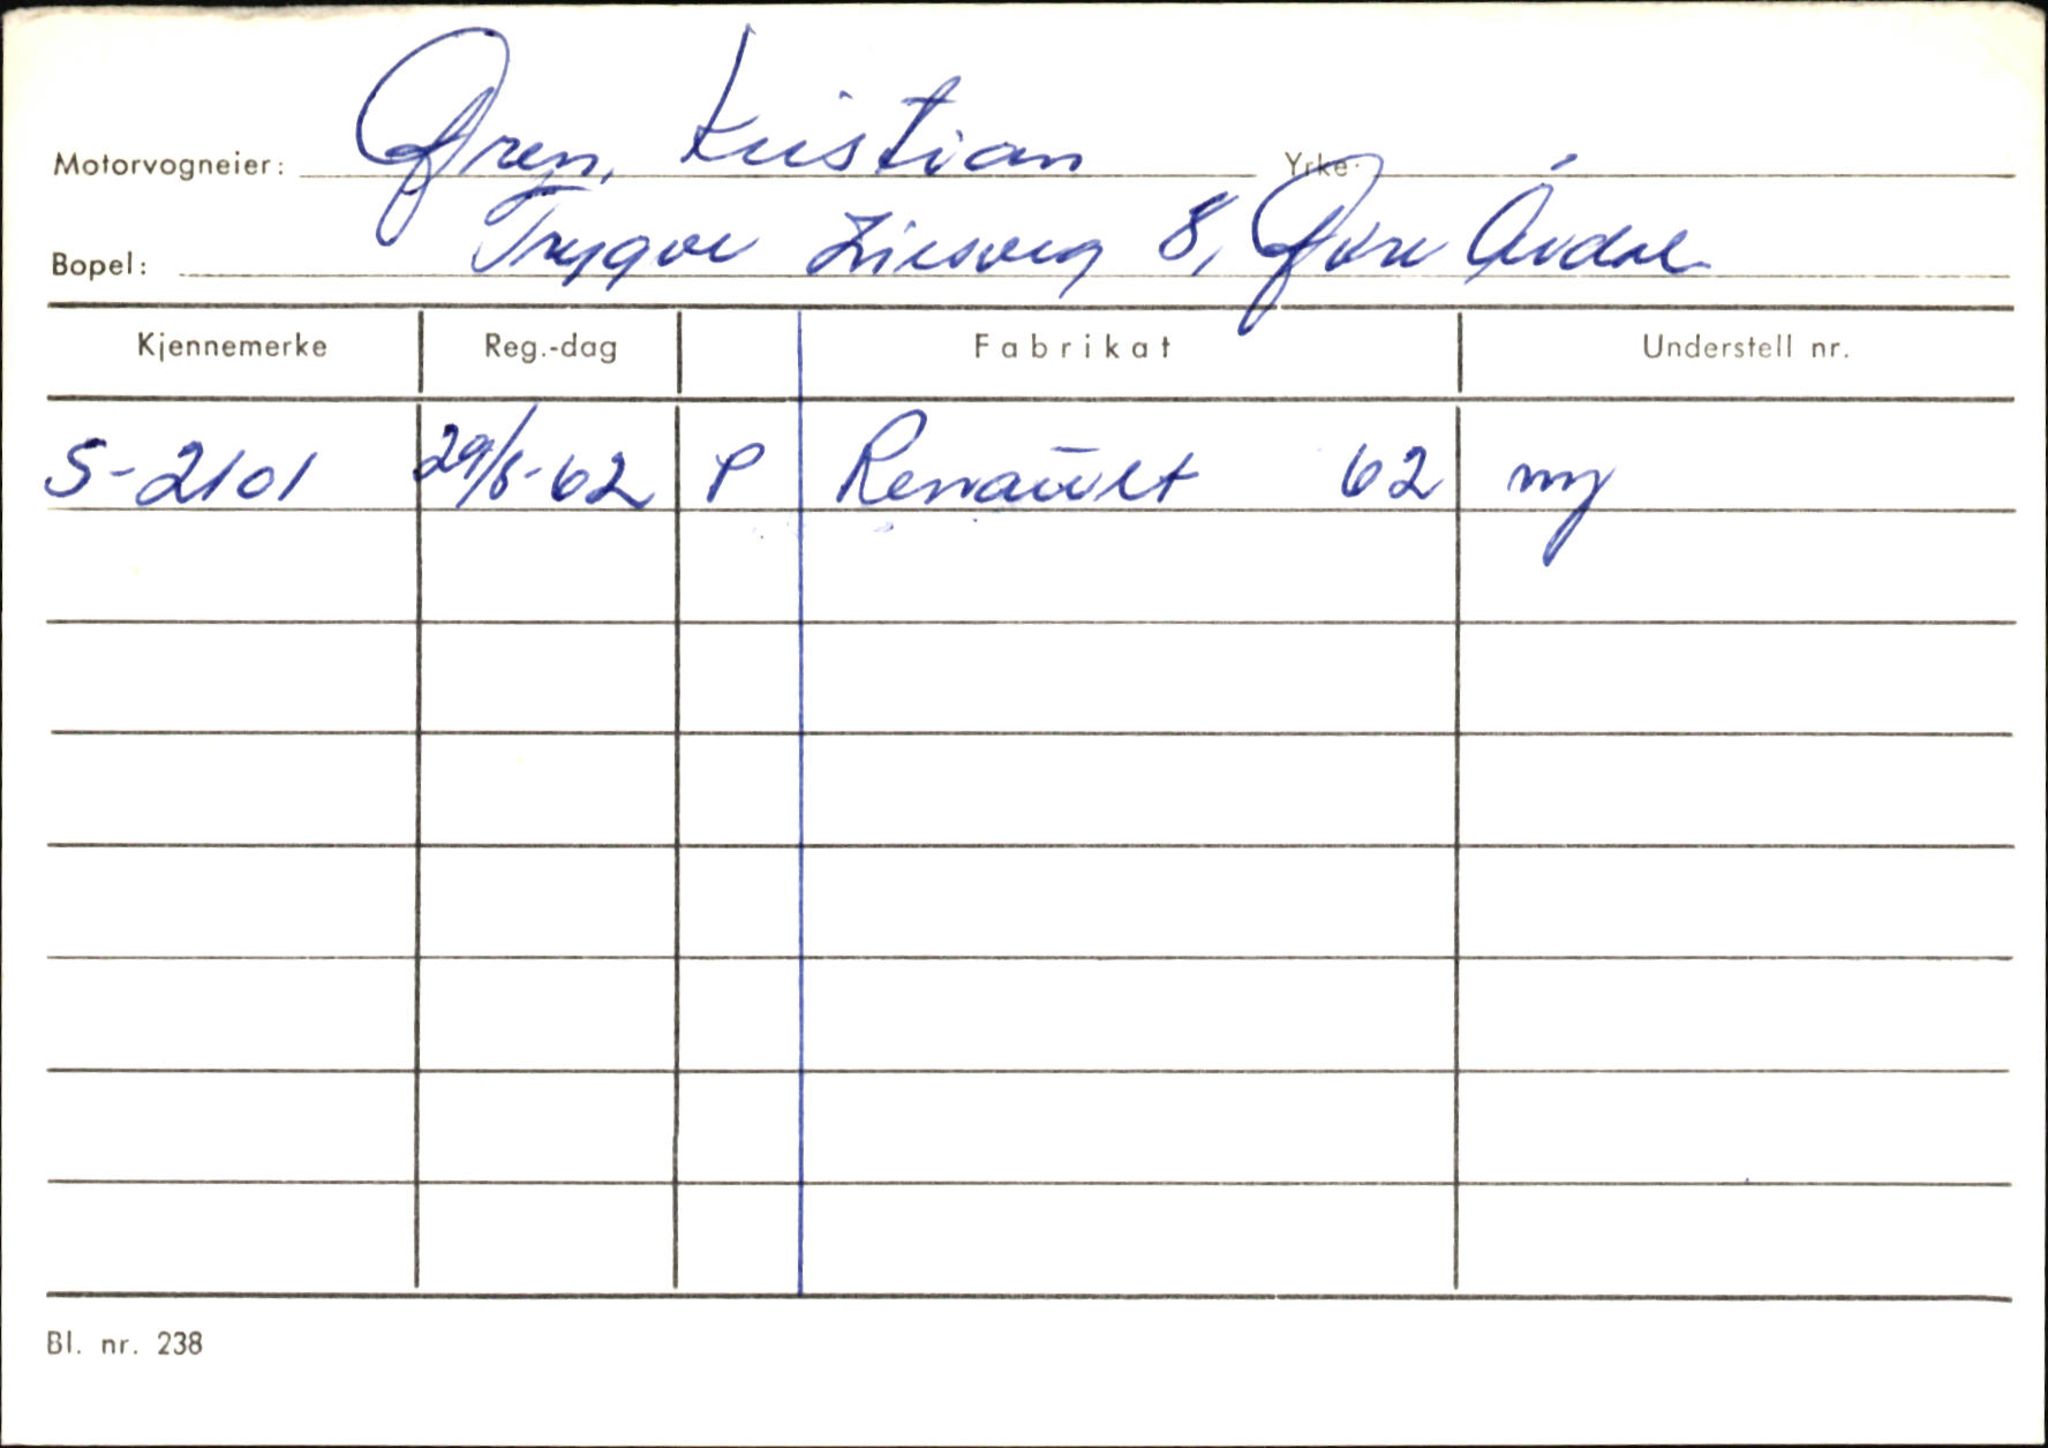 Motorvogneier: Øren, Kristian Yrke:
Bopel: Trygve Liesveg 8, Øvre Årdal
Kjennemerke Reg.-dag Fabrikat Understell nr.
S-2101 29/8-62 P Renault 62 ny
Bl. nr. 238